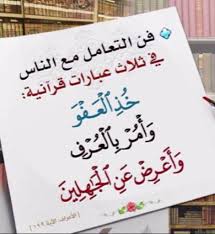 فن التعامل مع الناس
في ثلاث عبارات قرآنية:
خُذِ ٱلْعَفْوَ
وَأْمُرْ بِٱلْعُرْفِ
وَأَعْرِضْ عَنِ ٱلْجَٰهِلِينَ
[الأعراف: الآية ١٩٩]